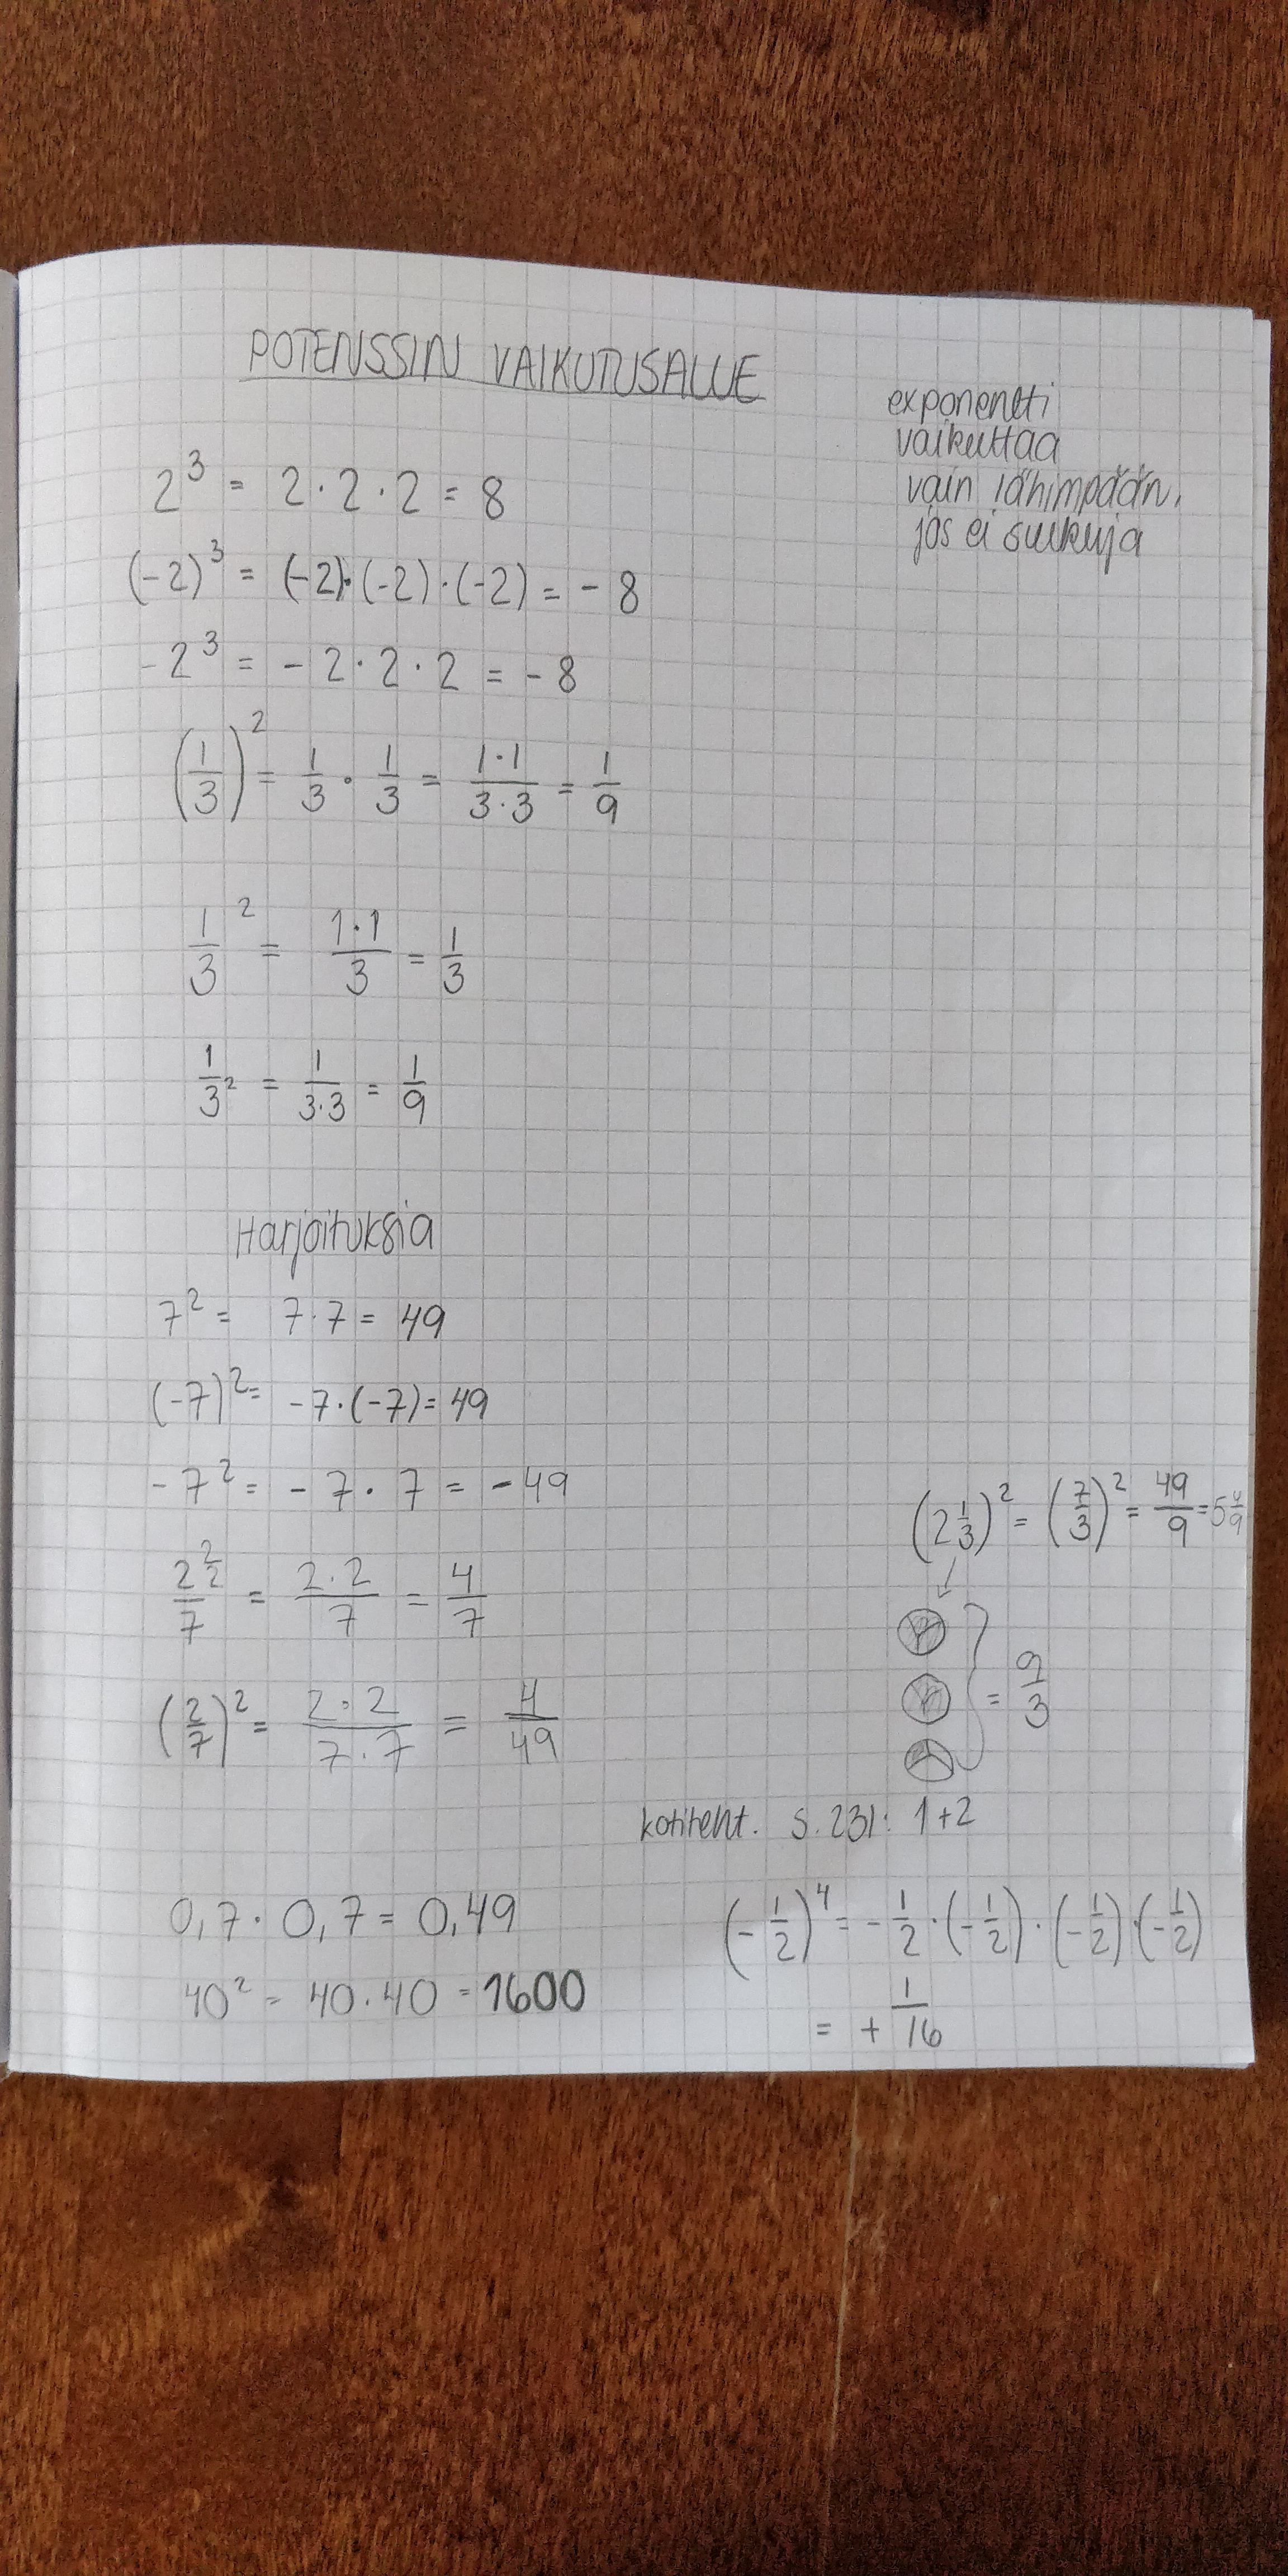 POTENSSIN VAIKUTUSALUE
exponentti
vaikuttaa
vain lähimpään,
jos ei sulkuja
2³ = 2·2·2 = 8
(-2)³ = (-2)·(-2)·(-2) = -8
-2³ = -2·2·2 = -8
(1/3)² = 1/3 · 1/3 = 1·1/3·3 = 1/9
1²/3 = 1·1/3 = 1/3
1/3² = 1/3·3 = 1/9
Harjoituksia
7² = 7·7 = 49
(-7)² = -7·(-7) = 49
-7² = -7·7 = -49
(2 1/3)² = (7/3)² = 49/9 = 5 4/9
2²/7 = 2·2/7 = 4/7
= 9/3
(2/7)² = 2·2/7·7 = 4/49
kotiteht. s. 231: 1+2
0,7·0,7 = 0,49
40² = 40·40 = 1600
(-1/2)⁴ = -1/2·(-1/2)·(-1/2)·(-1/2)
= + 1/16